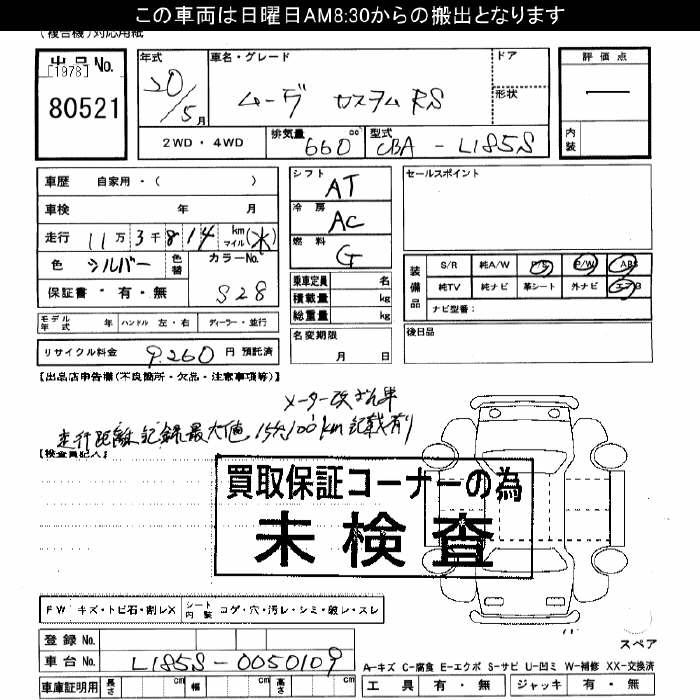 この車両は日曜日AM8:30からの搬出となります
(複合機)対応用紙
出品No.
[1978]
80521
年式
20/5月
車名・グレード
ムーヴ カスタムRS
ドア
形状
2WD・4WD
排気量
660 cc
型式
CBA - L185S
評価点
内装
車歴 自家用・( )
車検 年 月
走行 11万3千814 km マイル
色 シルバー
色替
カラーNo.
S28
保証書・有・無
シフト AT
冷房 AC
燃料 G
乗車定員 名
積載量 kg
総重量 kg
名変期限
月 日
セールスポイント
装備品
S/R 純A/W P/S P/W ABS
純TV 純ナビ 革シート 外ナビ エアB
ナビ型番:
後日品
モデル年式 年 ハンドル 左・右 ディーラー・並行
リサイクル料金 9,260 円 預託済
【出品店申告欄(不良箇所・欠品・注意事項等)】
メーター改ざん車
走行距離記録最大値 157,100km 記載有り
【検査員記入】
買取保証コーナーの為
未検査
FW キズ・トビ石・割レX
シート内装 コゲ・穴・汚レ・シミ・破レ・スレ
登録No.
車台No. L185S-0050109
車庫証明用 長さ cm 幅 cm 高さ cm
スペア
A-キズ C-腐食 E-エクボ S-サビ U-凹ミ W-補修 XX-交換済
工具 有・無 ジャッキ 有・無